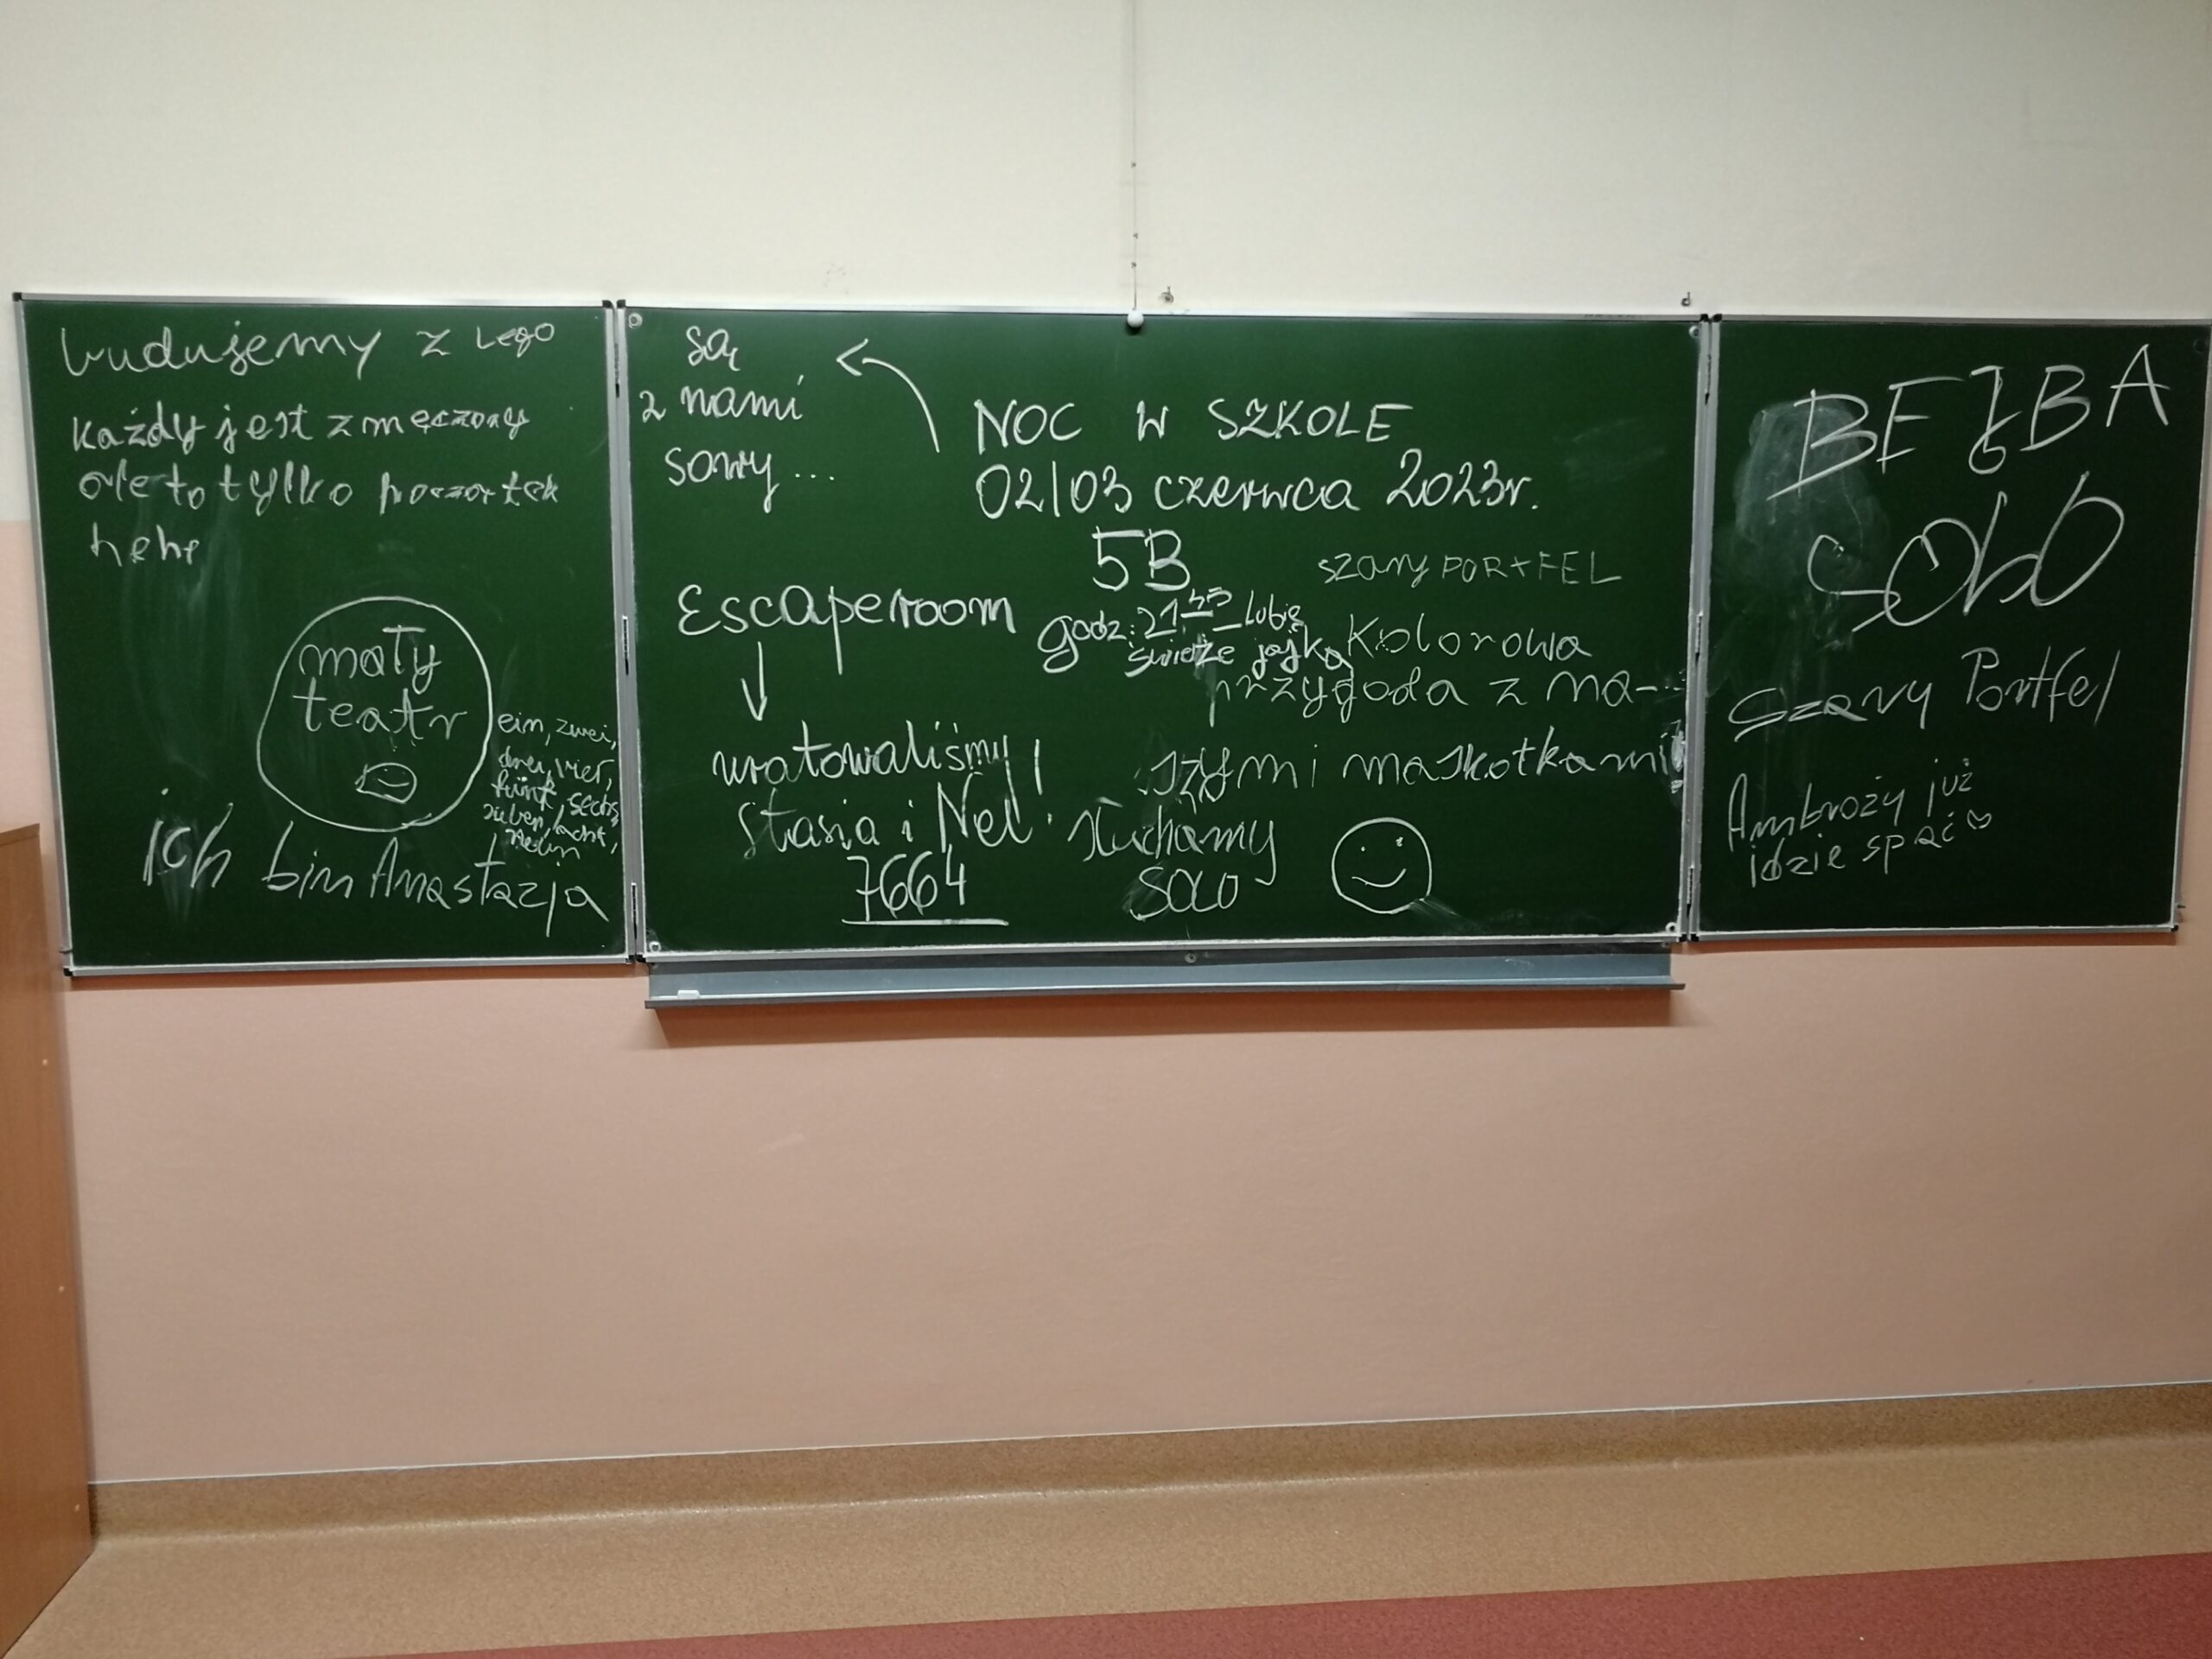 budujemy z Lego
każdy jest zmęczony
ale to tylko początek
hehe
mały
teatr
ein, zwei,
drei, vier,
fünf, sechs,
sieben, acht,
neun
ich bin Anastazja
są
z nami
sowy...
NOC W SZKOLE
02/03 czerwca 2023r.
5B
szary PORTFEL
Escaperoom
godz: 21:45 lubię
świeże jajka
Kolorowa
przygoda z na-
szymi maskotkami
uratowaliśmy
Stasia i Nel!
7664
słuchamy
SOLO
BE BA
SOLO
Szary Portfel
Ambroży już
idzie spać